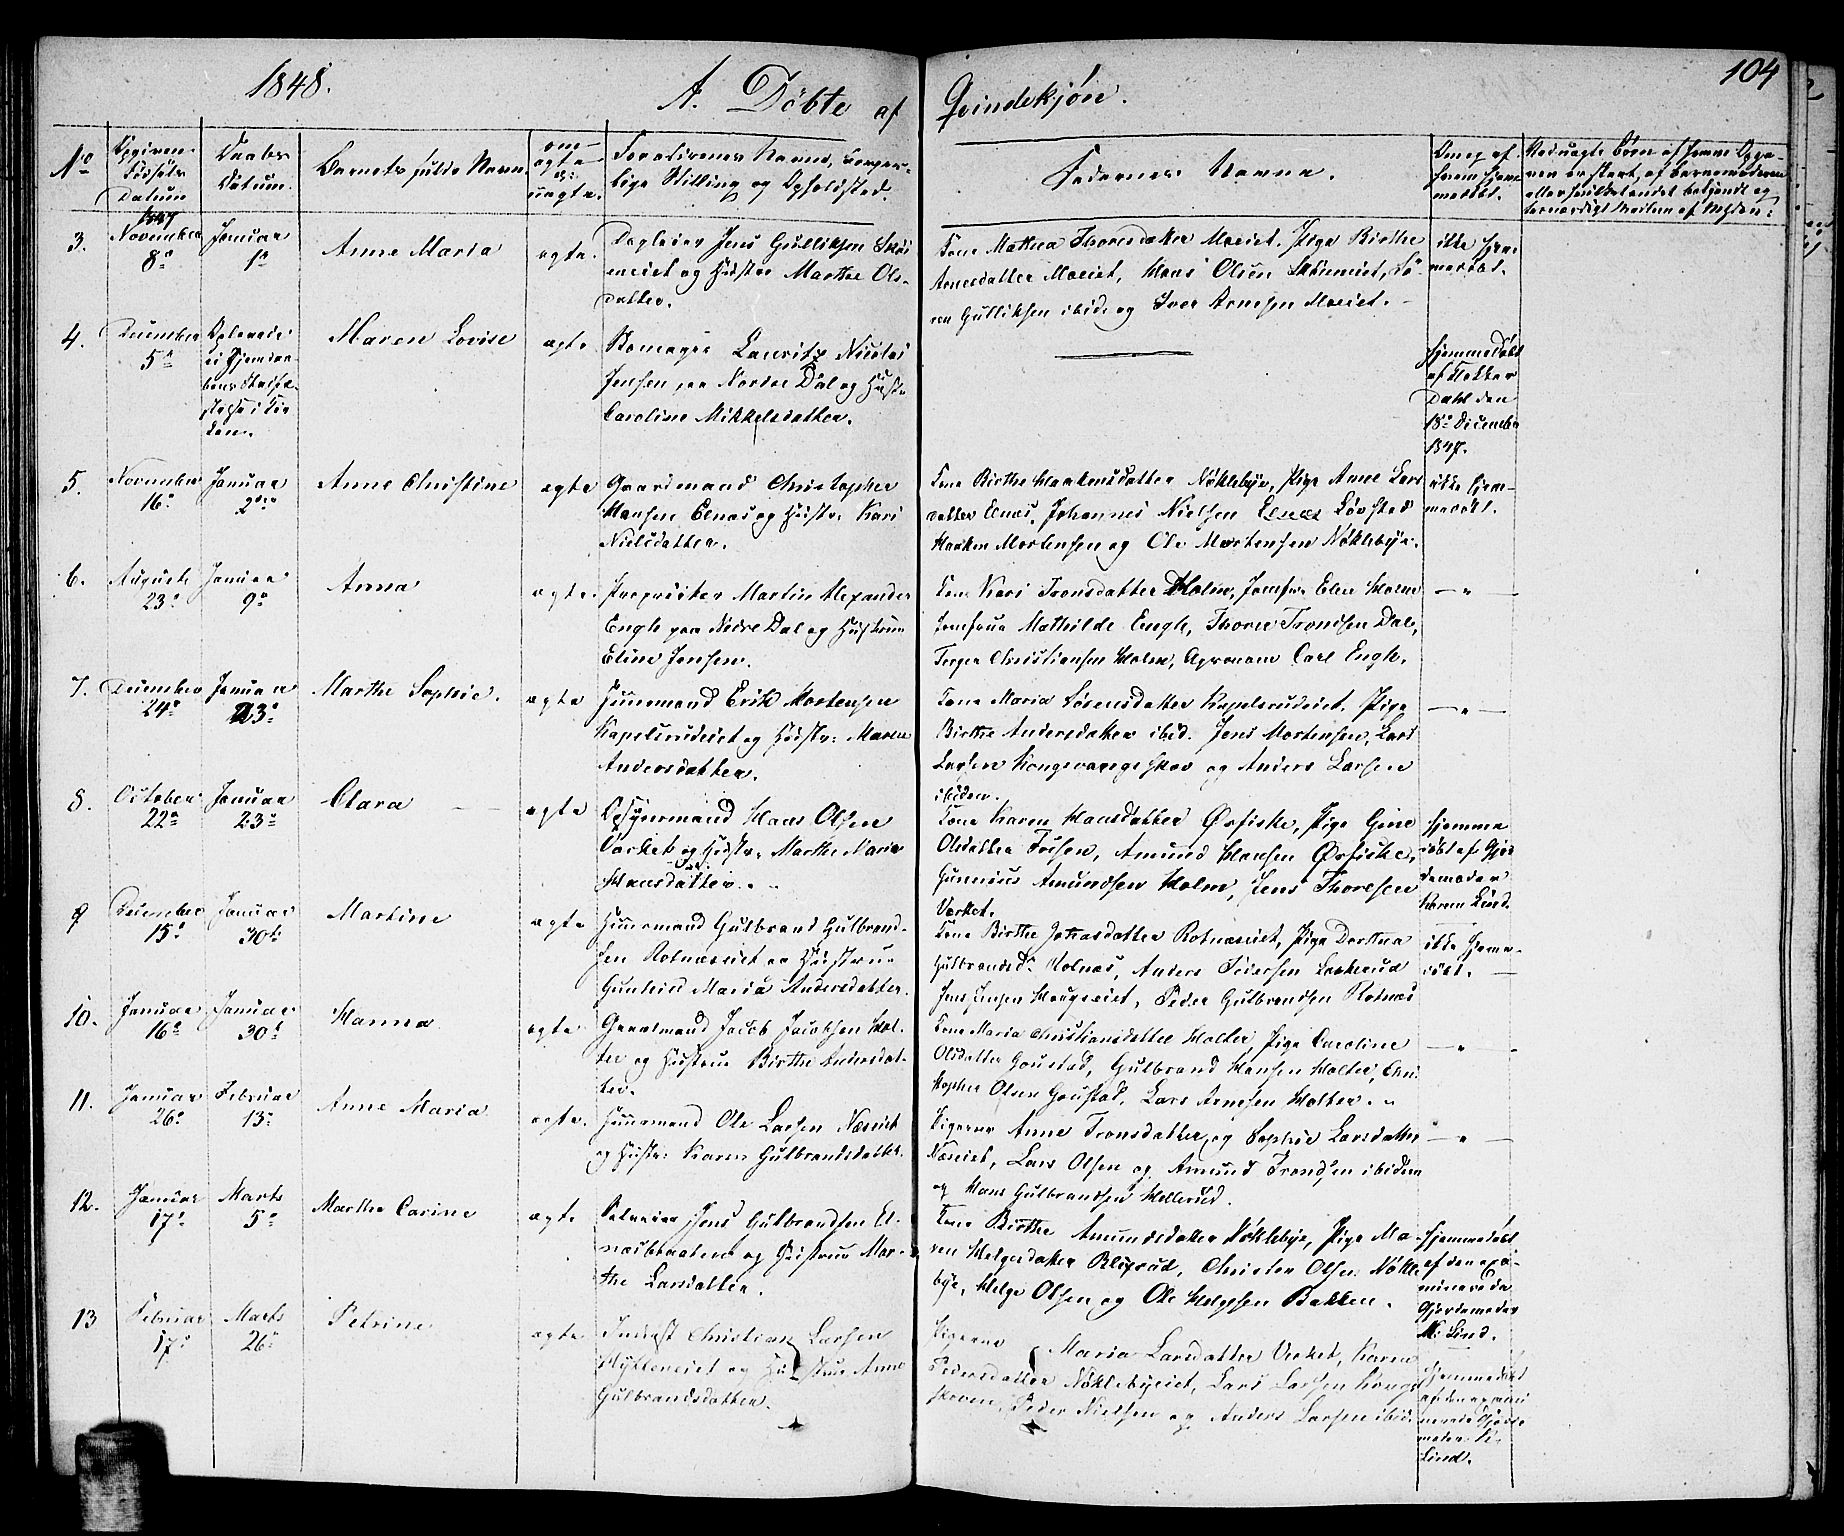 1848.
A. Döbte af Qvindekjön.
104
No
Opgiven Födsels Datum
Daabs Datum.
Barnets fulde Navn.
om ægte el: uægte.
Foreldrenes Navne, borgerlige Stilling og Opholdsted.
Faddernes Navne.
Om og af hvem hjemmedöbt.
3.
1847
November
8de
Januar
1ste
Anne Maria
ægte.
Dagleier Jens Gulliksen
eiet og Hustru Marthe Ols-
datter.
Kone Mathea Thoresdatter Moeiet. Pige Birthe
Arnesdatter Moeiet, Hans Olsen
Gulliksen ibid. og Iver Arnesen Moeiet.
ikke hjem-
medöbt.
4.
December
5te
Maren Lovise
ægte
Skomager Lauritz Nicolai
Jensen, paa Nordre Dal og Hustr.
Caroline Mikkelsdatter.
Hjemmedöbt
af Klokker
Dahl den
18de December
1847.
5.
November
16de
Januar
2den
Anne Christine
ægte
Gaardmand Christopher
Hansen Elnæs og Hustr: Kari
Nielsdatter.
Kone Birthe Haakensdatter Nöklebye, Pige Anne Lars
datter Elnæs, Johannes Nielsen Elnæs
Haaken Mortensen og Ole Mortensen Nöklebye.
ikke hjem-
medöbt.
6.
August
23de
Januar
9de
Anna
ægte.
Proprietær Martin Alexander
Engh paa Nedre Dal og Hustrue
Eline Jensen.
Kone Kari Tronsdatter Holm, Jomfru Elen Holm
Jomfrue Mathilde Engh, Thorer Trondsen Dal,
Torger Christiansen Holm, Agronom Carl Engh.
— " —
7.
December
24de
Januar
23de
Marthe Sophie.
ægte
Huusmand Erik Mortensen
Kapelsrudeiet og Hustr: Maren
Andersdatter.
Kone Maria Sörensdatter Kapelsrudeiet. Pige
Birthe Andersdatter ibid. Jens Mortensen, Lars
Larsen Kongsvangsskov og Anders Larsen
ibidem.
— " —
8.
October
22de
Januar
23de
Clara
ægte
Opsynsmand Hans Olsen
Værket og Hustr. Marthe Maria
Hansdatter.
Kone Karen Hansdatter Örfiske, Pige Gine
Olsdatter Fossen, Amund Hansen Örfiske,
Gunnius Amundsen Holm, Jens Thoresen
Værket.
Hjemme
döbt af Gjor
demoder
Karen Lind.
9
December
15de
Januar
30te
Martine
ægte
Huusmand Gulbrand Gulbrand-
sen Rotnæseiet og Hustrue
Gunhild Maria Andersdatter.
Kone Birthe Johasdatter Rotnæseiet, Pige Dorthea
Gulbrandsd: Holnæs, Anders Pedersen
Jens Jensen Haugseiet, Peder Gulbrandsen Rotnæs
ikke hjemme-
döbt.
10.
Januar
16de
Januar
30te
Hanna
ægte
Gaardmand Jacob Jacobsen Hol-
ter og Hustrue Birthe Andersdat-
ter.
Kone Maria Christiansdatter Holter, Pige Caroline
Olsdatter Goustad, Gulbrand Hansen Holter, Chri-
stopher Olsen Goustad, Lars Arnesen Holter.
— " —
11.
Januar
26de
Februar
13de
Anne Maria
ægte.
Huusmand Ole Larsen Næseiet
og Hustr: Karen Gulbrandsdatter.
Pigerne Anne Tronsdatter og Sophie Larsdatter
Næseiet, Lars Olsen og Amund Trondsen ibidem
og Hans Gulbrandsen Hellerud.
— " —
12.
Januar
17de
Marts
5te
Marthe Carine
ægte
Selveier Jens Gulbrandsen El-
næsbraaten og Hustrue Mar-
the Larsdatter.
Kone Birthe Amundsdatter Nöklebye, Pige Ma-
ren Helgesdatter Blixrud, Christen Olsen Nökle
bye, Helge Olsen og Ole Helgesen Bakken.
Hjemmedöbt
af den exa-
minerede
Gjordemoder
K: Lind.
13
Februar
17de
Marts
26de
Petrine
ægte
Inderst Christian Larsen
Hytteneiet og Hustrue Anne
Gulbrandsdatter.
Pigerne Maria Larsdatter Verket, Karen
Pedersdatter Nöklebyeiet, Lars Larsen Kongs
skoven, Peder Nielsen og Anders Larsen ibid.
Hjemmedöbt
af den exami
nerede Gjorde
moder K.
Lind.